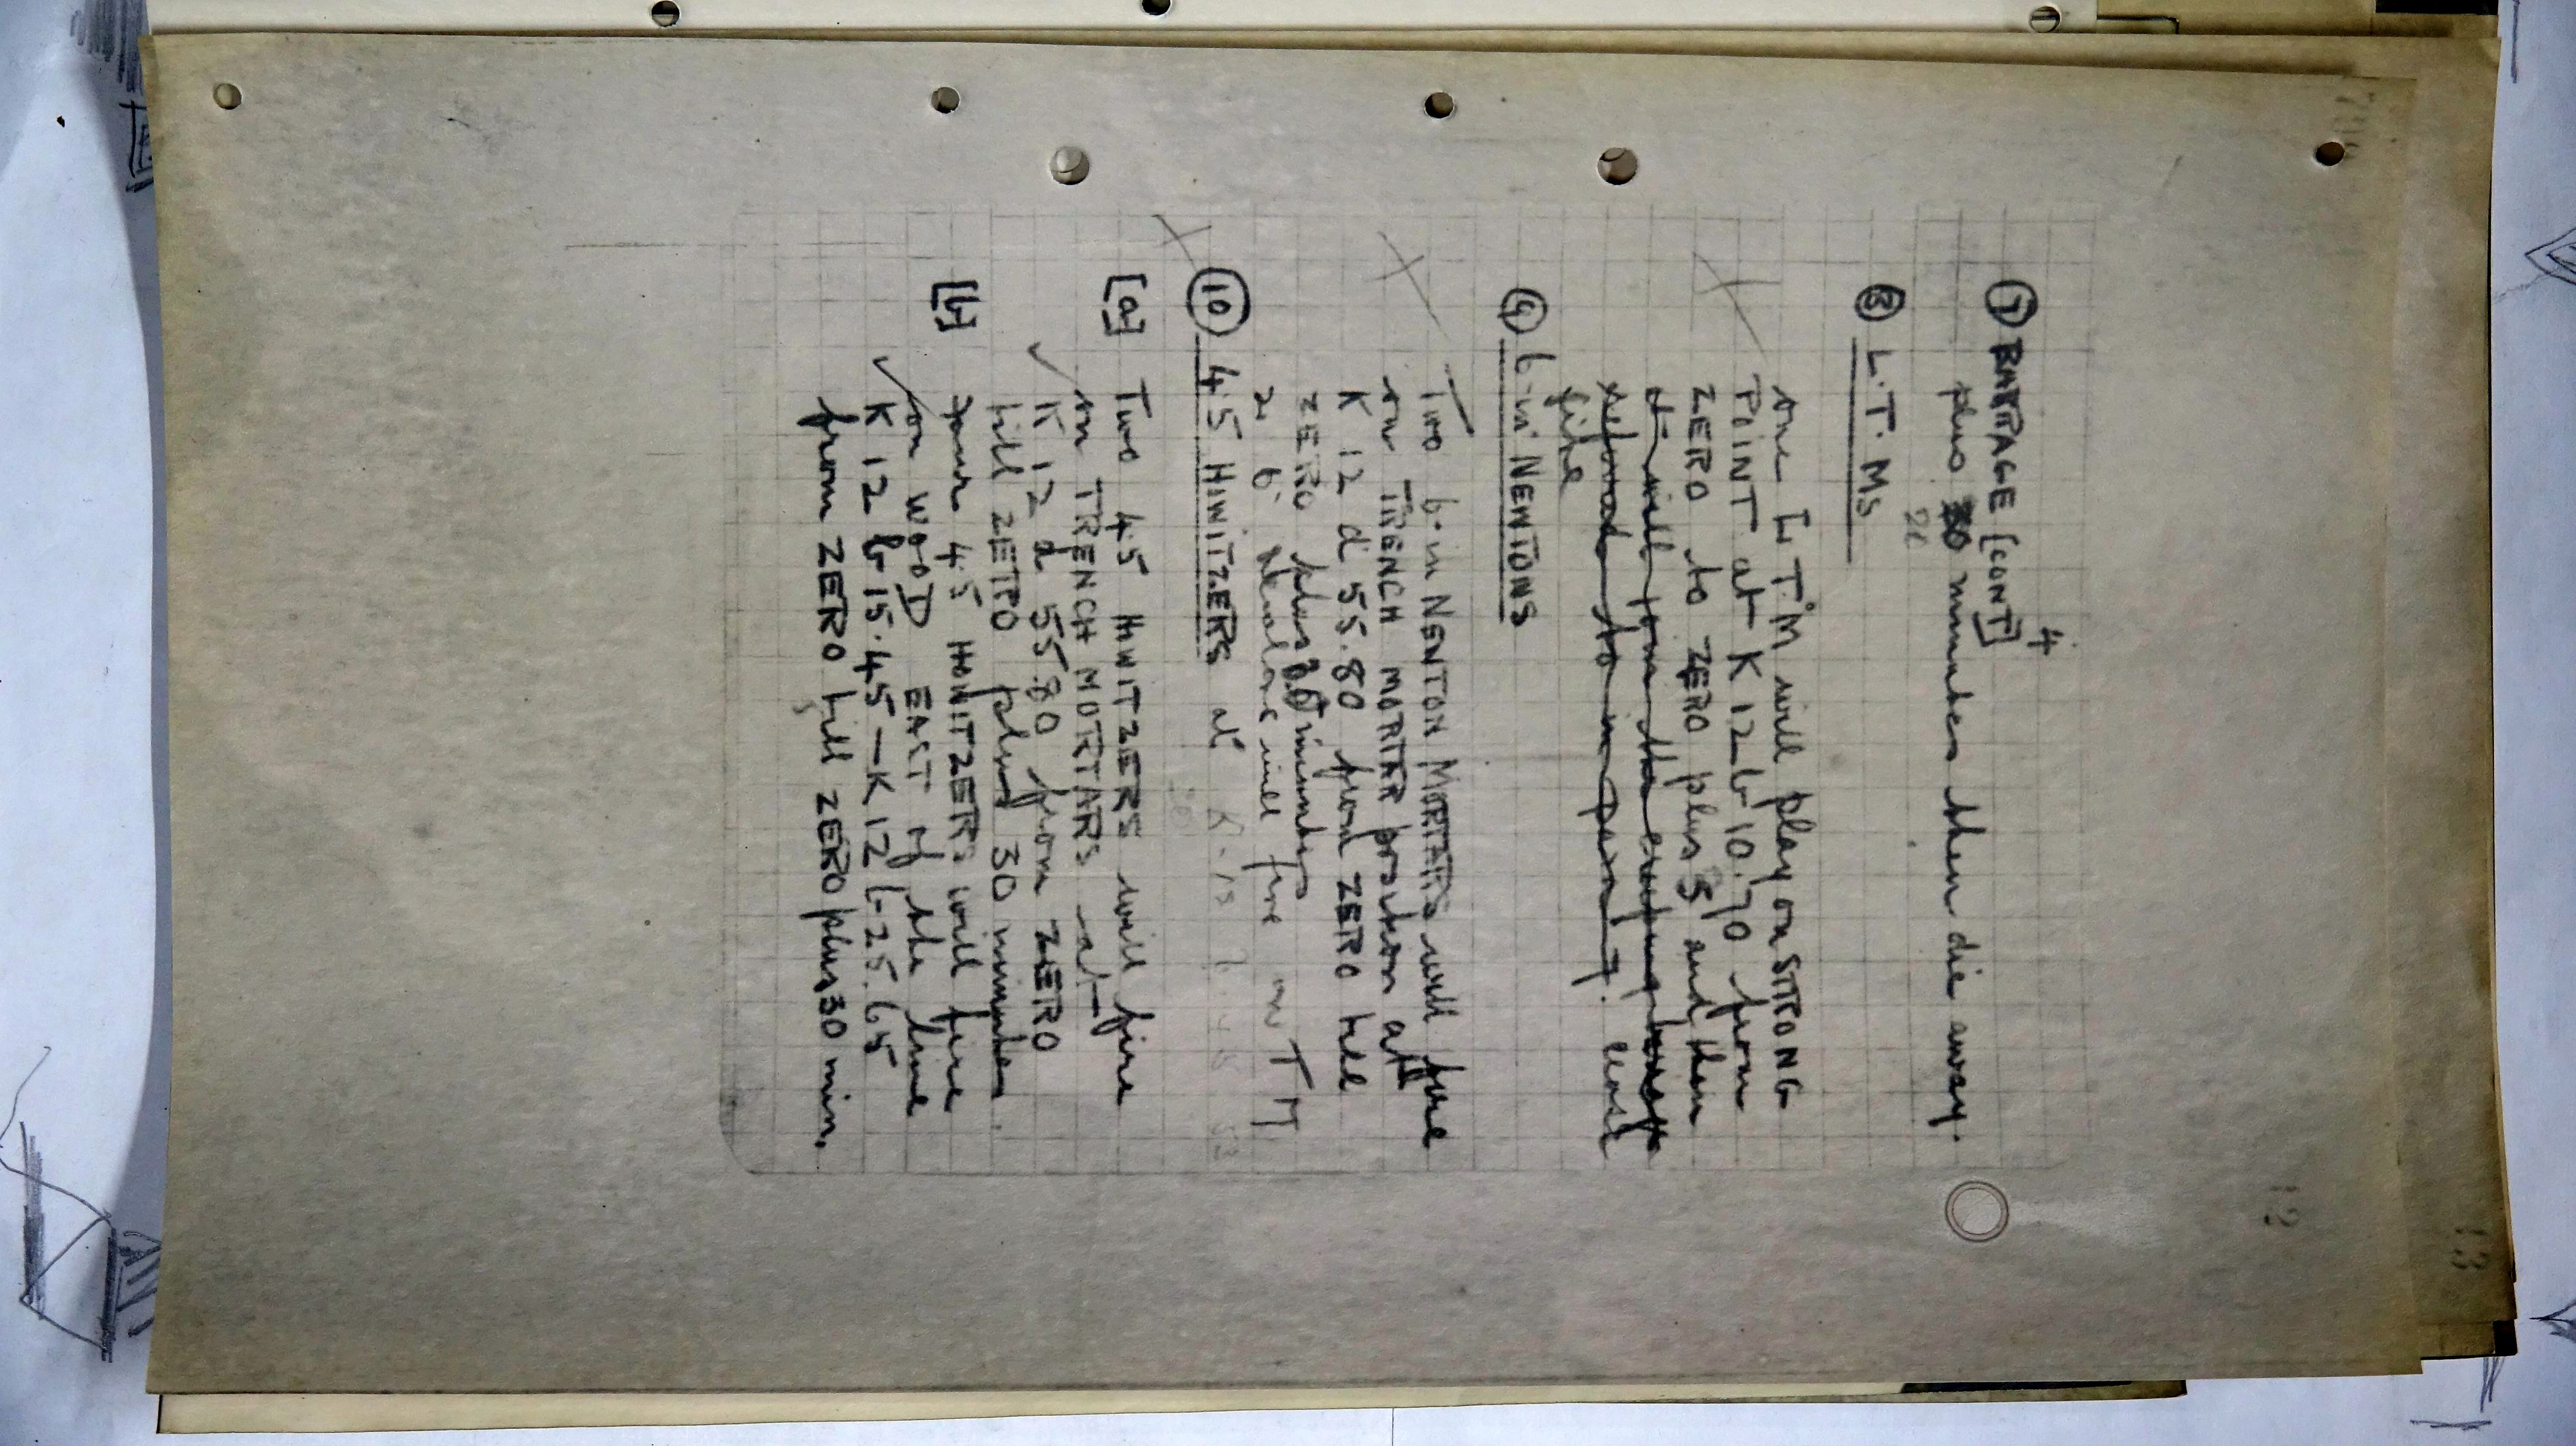 4
⑦ BARRAGE [CONT]
plus 30 minutes then die away.
20
⑧ L.T.Ms
One L.T.M will play on STRONG
POINT at K 12 b 10.70 from
ZERO to ZERO plus 5 and then
it will join the
to in para 7. cease
fire
⑨ 6-in NEWTONS
Two 6-in NEWTON MORTARS will fire
on TRENCH MORTAR position at
K 12 d 55.80 from ZERO till
ZERO plus 20 minutes
2 6" will fire on TM
at K.12
⑩ 4.5 HOWITZERS
[a] Two 4.5 HOWITZERS will fire
on TRENCH MORTARS at
K 12 d 55.80 from ZERO
till ZERO plus 30 minutes.
[b] Four 4.5 HOWITZERS will fire
on WOOD EAST of the line
K 12 b 15.45 — K 12 b 25.65
from ZERO till ZERO plus 30 min.
12
13